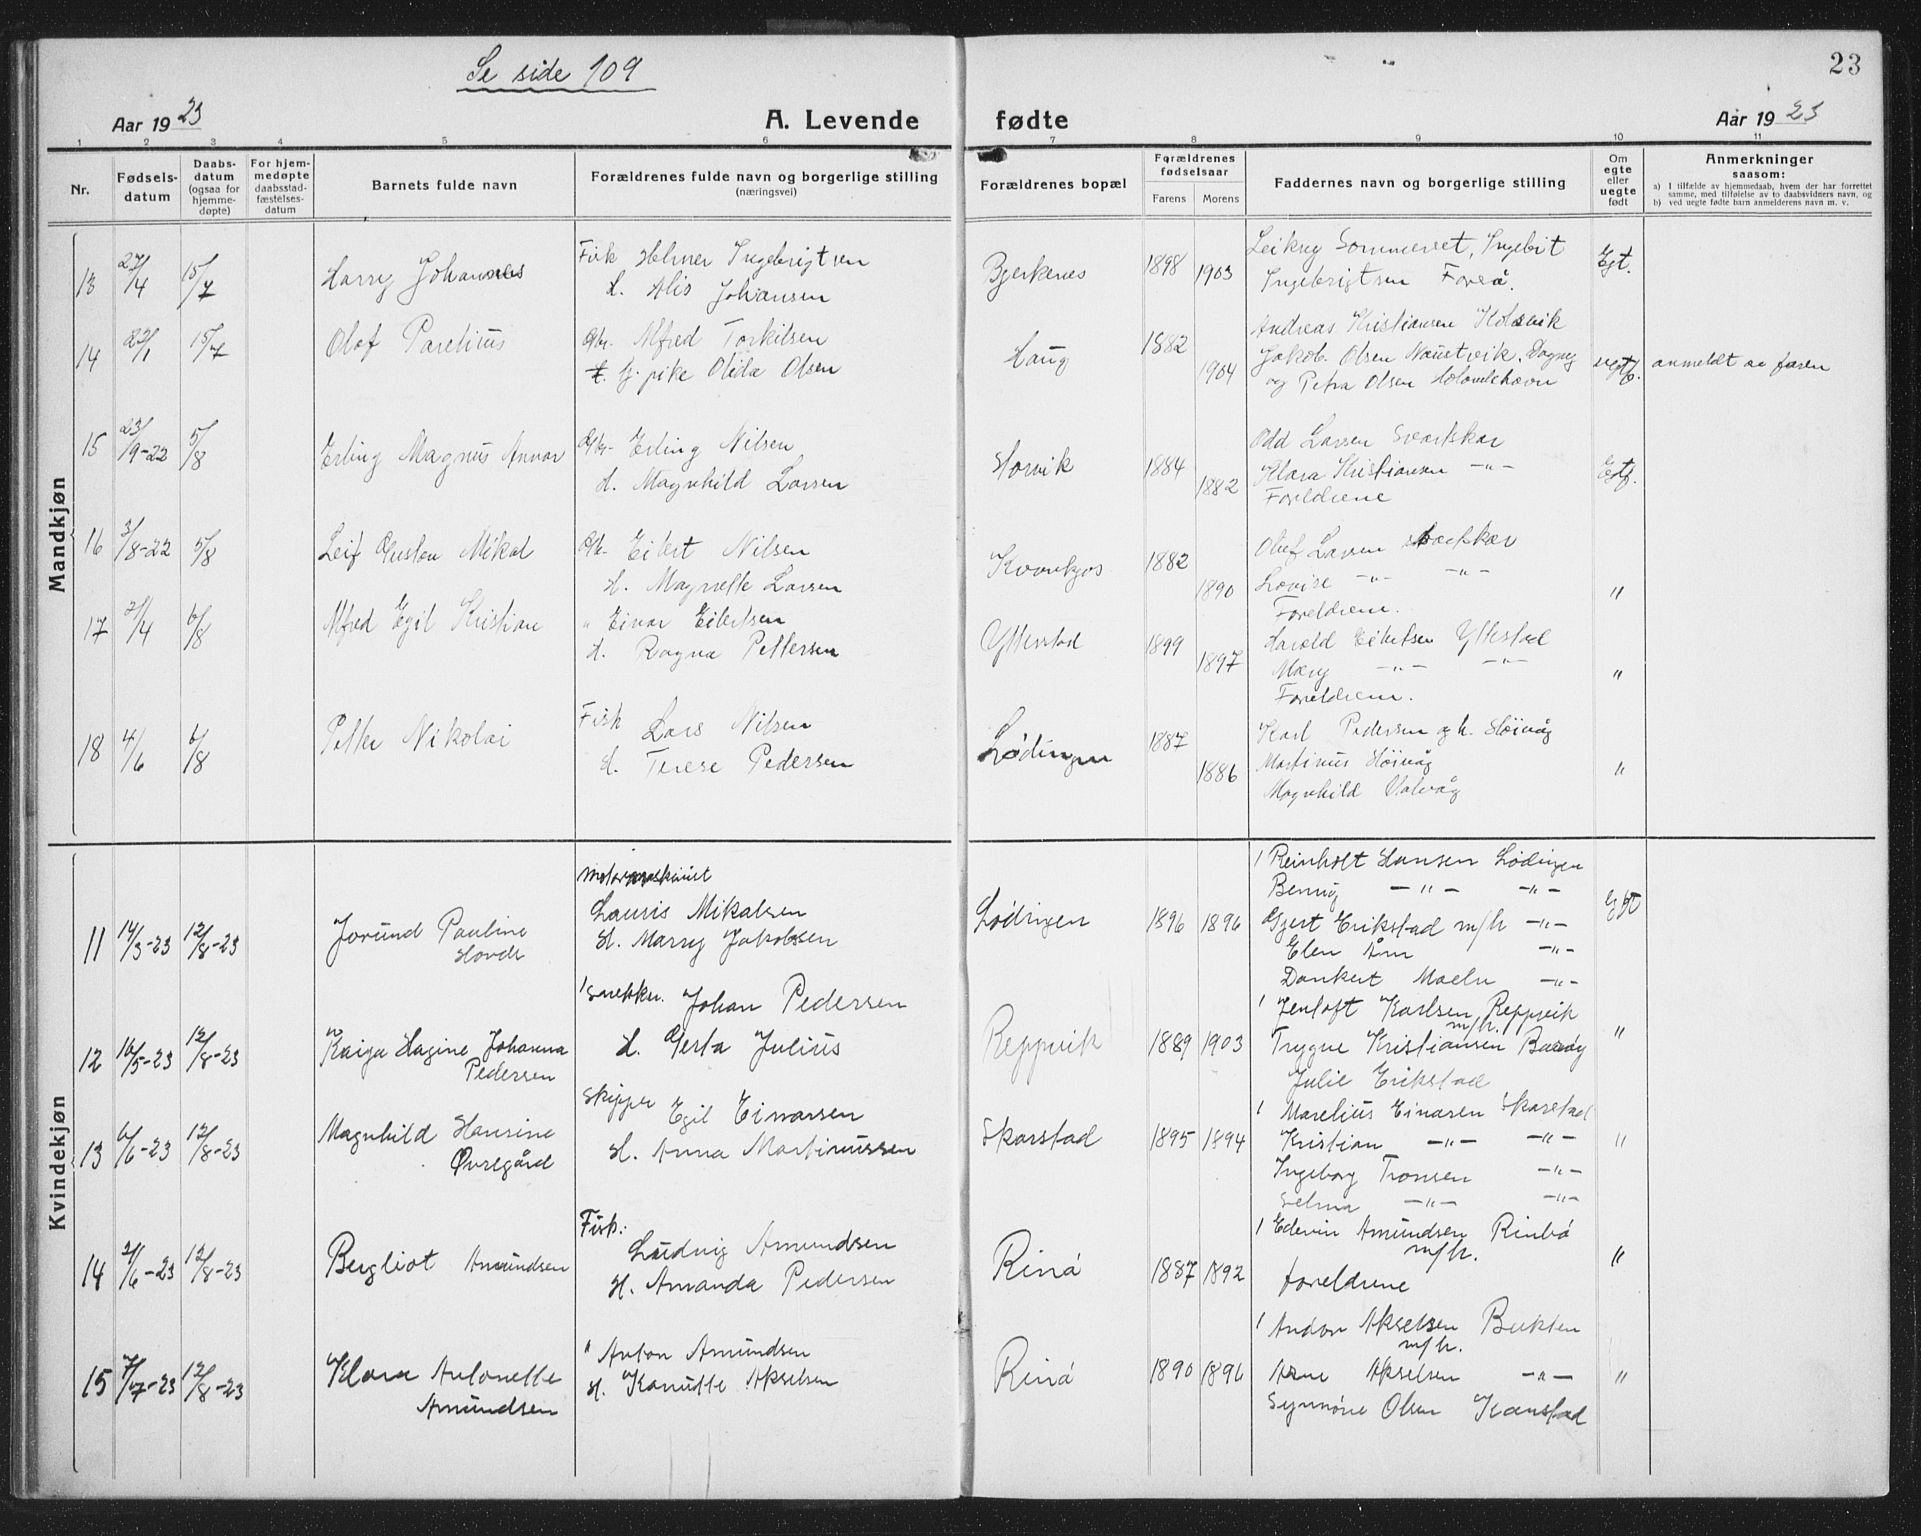 Se side 109
23
Aar 1923
A. Levende fødte
Aar 1923
1 2 3 4 5 6 7 8 9 10 11
Nr.
Fødsels-
datum
Daabs-
datum
(ogsaa for
hjemme-
døpte)
For hjem-
medøpte
daabsstad-
fæstelses-
datum
Barnets fulde navn
Forældrenes fulde navn og borgerlige stilling
(næringsvei)
Forældrenes bopæl
Forældrenes
fødselsaar
Farens Morens
Faddernes navn og borgerlige stilling
Om
egte
eller
uegte
født
Anmerkninger
saasom:
a) I tilfælde av hjemmedaab, hvem der har forrettet
samme, med tilføielse av to daabsvidners navn, og
b) ved uegte fødte barn anmelderens navn m. v.
Mandkjøn
13 27/4 15/7 Harry Johannes
Fisk Helmer Ingebrigtsen
H. Alis Johansen
Bjerkenes 1898 1903
Sommerset, Ingebrit
Ingebrigtsen Foreå.
Egt.
14 22/1 15/7 Olaf Parelius
Gbr. Alfred Torkilsen
pike Olida Olsen
Haug 1882 1904
Andreas Kristiansen Kolsvik
Jakob Olsen Naustvik, Dagny
og Petra Olsen
uegt. anmeldt av faren
15 23/9-22 5/8 Erling Magnus Annar
Gbr. Erling Nilsen
H. Magnhild Larsen
Horvik 1884 1882
Odd Larsen Svartskar
Klara Kristiansen -"-
Foreldrene
Egt.
16 3/8-22 5/8 Leif Gustav Mikal
Gbr. Eilert Nilsen
H. Magnelle Larsen
1882 1890
Oluf Larsen
Lovise -"- -"-
Foreldrene.
"
17 21/4 6/8 Alfred Egil Kristian
" Einar Eilertsen
H. Ragna Pettersen
Ytterstad 1899 1897
Harald Eilertsen Yttestad
Mary -"- -"-
Foreldrene.
"
18 4/6 6/8 Petter Nikolai
Fisk Lars Nilsen
H. Terese Pedersen
Lødingen 1887 1886
Karl Pedersen og h. Høivåg
Martinus Høivåg
Magnhild Valvåg
"
Kvindekjøn
11 14/3-23 12/8-23 Jorund Pauline
Hovde
Motormaskinist
Lauris Mikalsen
H. Marry Jakobsen
Lødingen 1896 1896
1 Reinholt Hansen Lødingen
Benny -"- -"-
Gjert Erikstad m/h -"-
Elen Åm -"-
Dankert Maeln -"-
Egt
12 16/5-23 12/8-23 Kaiga Hagine Johanna
Pedersen
Snekker. Johan Pedersen
H. Gerta Julius
Reppvik 1889 1903
1 Jentoft Karlsen Reppvik
m/h.
Trygve Kristiansen Barøy
Julie Erikstad
"
13 6/6-23 12/8-23 Magnhild Hansine
Øvregård
Skipper Egil Einarsen
H. Anna Martinussen
Skarstad 1895 1894
1 Marelius Einarsen Skarstad
Kristian -"- -"-
Ingeborg Tronsen -"-
Selma -"- -"-
"
14 2/6-23 12/8-23 Bergliot Amundsen
Fisk:
Ludvig Amundsen
H. Amanda Pedersen
Rinø 1887 1892
1 Edevin Amundsen Rinbø
m/h.
foreldrene
"
15 7/7-23 12/8-23 Klara Antonette
Amundsen
" Anton Amundsen
H. Kanutte Akselsen
Rinø 1890 1896
1 Andor Akselsen Bukten
m/h.
Arne Akselsen -"-
Synnøve Olsen Kanstad
"